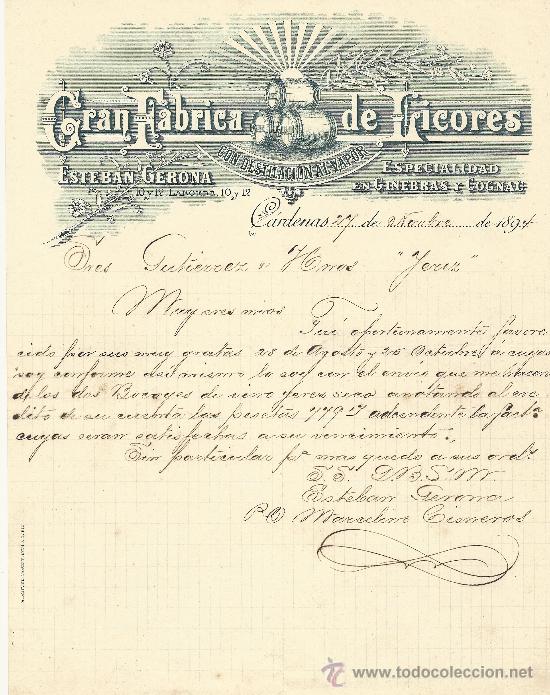 Gran Fábrica de Licores
CON DESTILACION AL VAPOR
ESTEBAN GERONA
10 y 12 LABORDE, 10 y 12
ESPECIALIDAD
EN GINEBRAS Y COGNAC
Cárdenas 27 de de 1894
Sres Gutierrez y Hnos "Jerez"
Muy sres mios
Fuí oportunamente favore-
cido por sus muy gratas 28 de Agosto y 20 Octubre á cuyas
soy conforme asi mismo lo soy con el envio que me hacen
de los dos Bocoyes de vino jeres seco anotando al cre-
dito de su cuenta las pesetas ascendente la factª
cuyas seran satisfechas a su vencimiento.
Sin particular pr mas quedo a sus ords
S. S. Q. B. S. M.
Esteban Gerona
PO Marcelino Cisneros
todocoleccion
www.todocoleccion.net